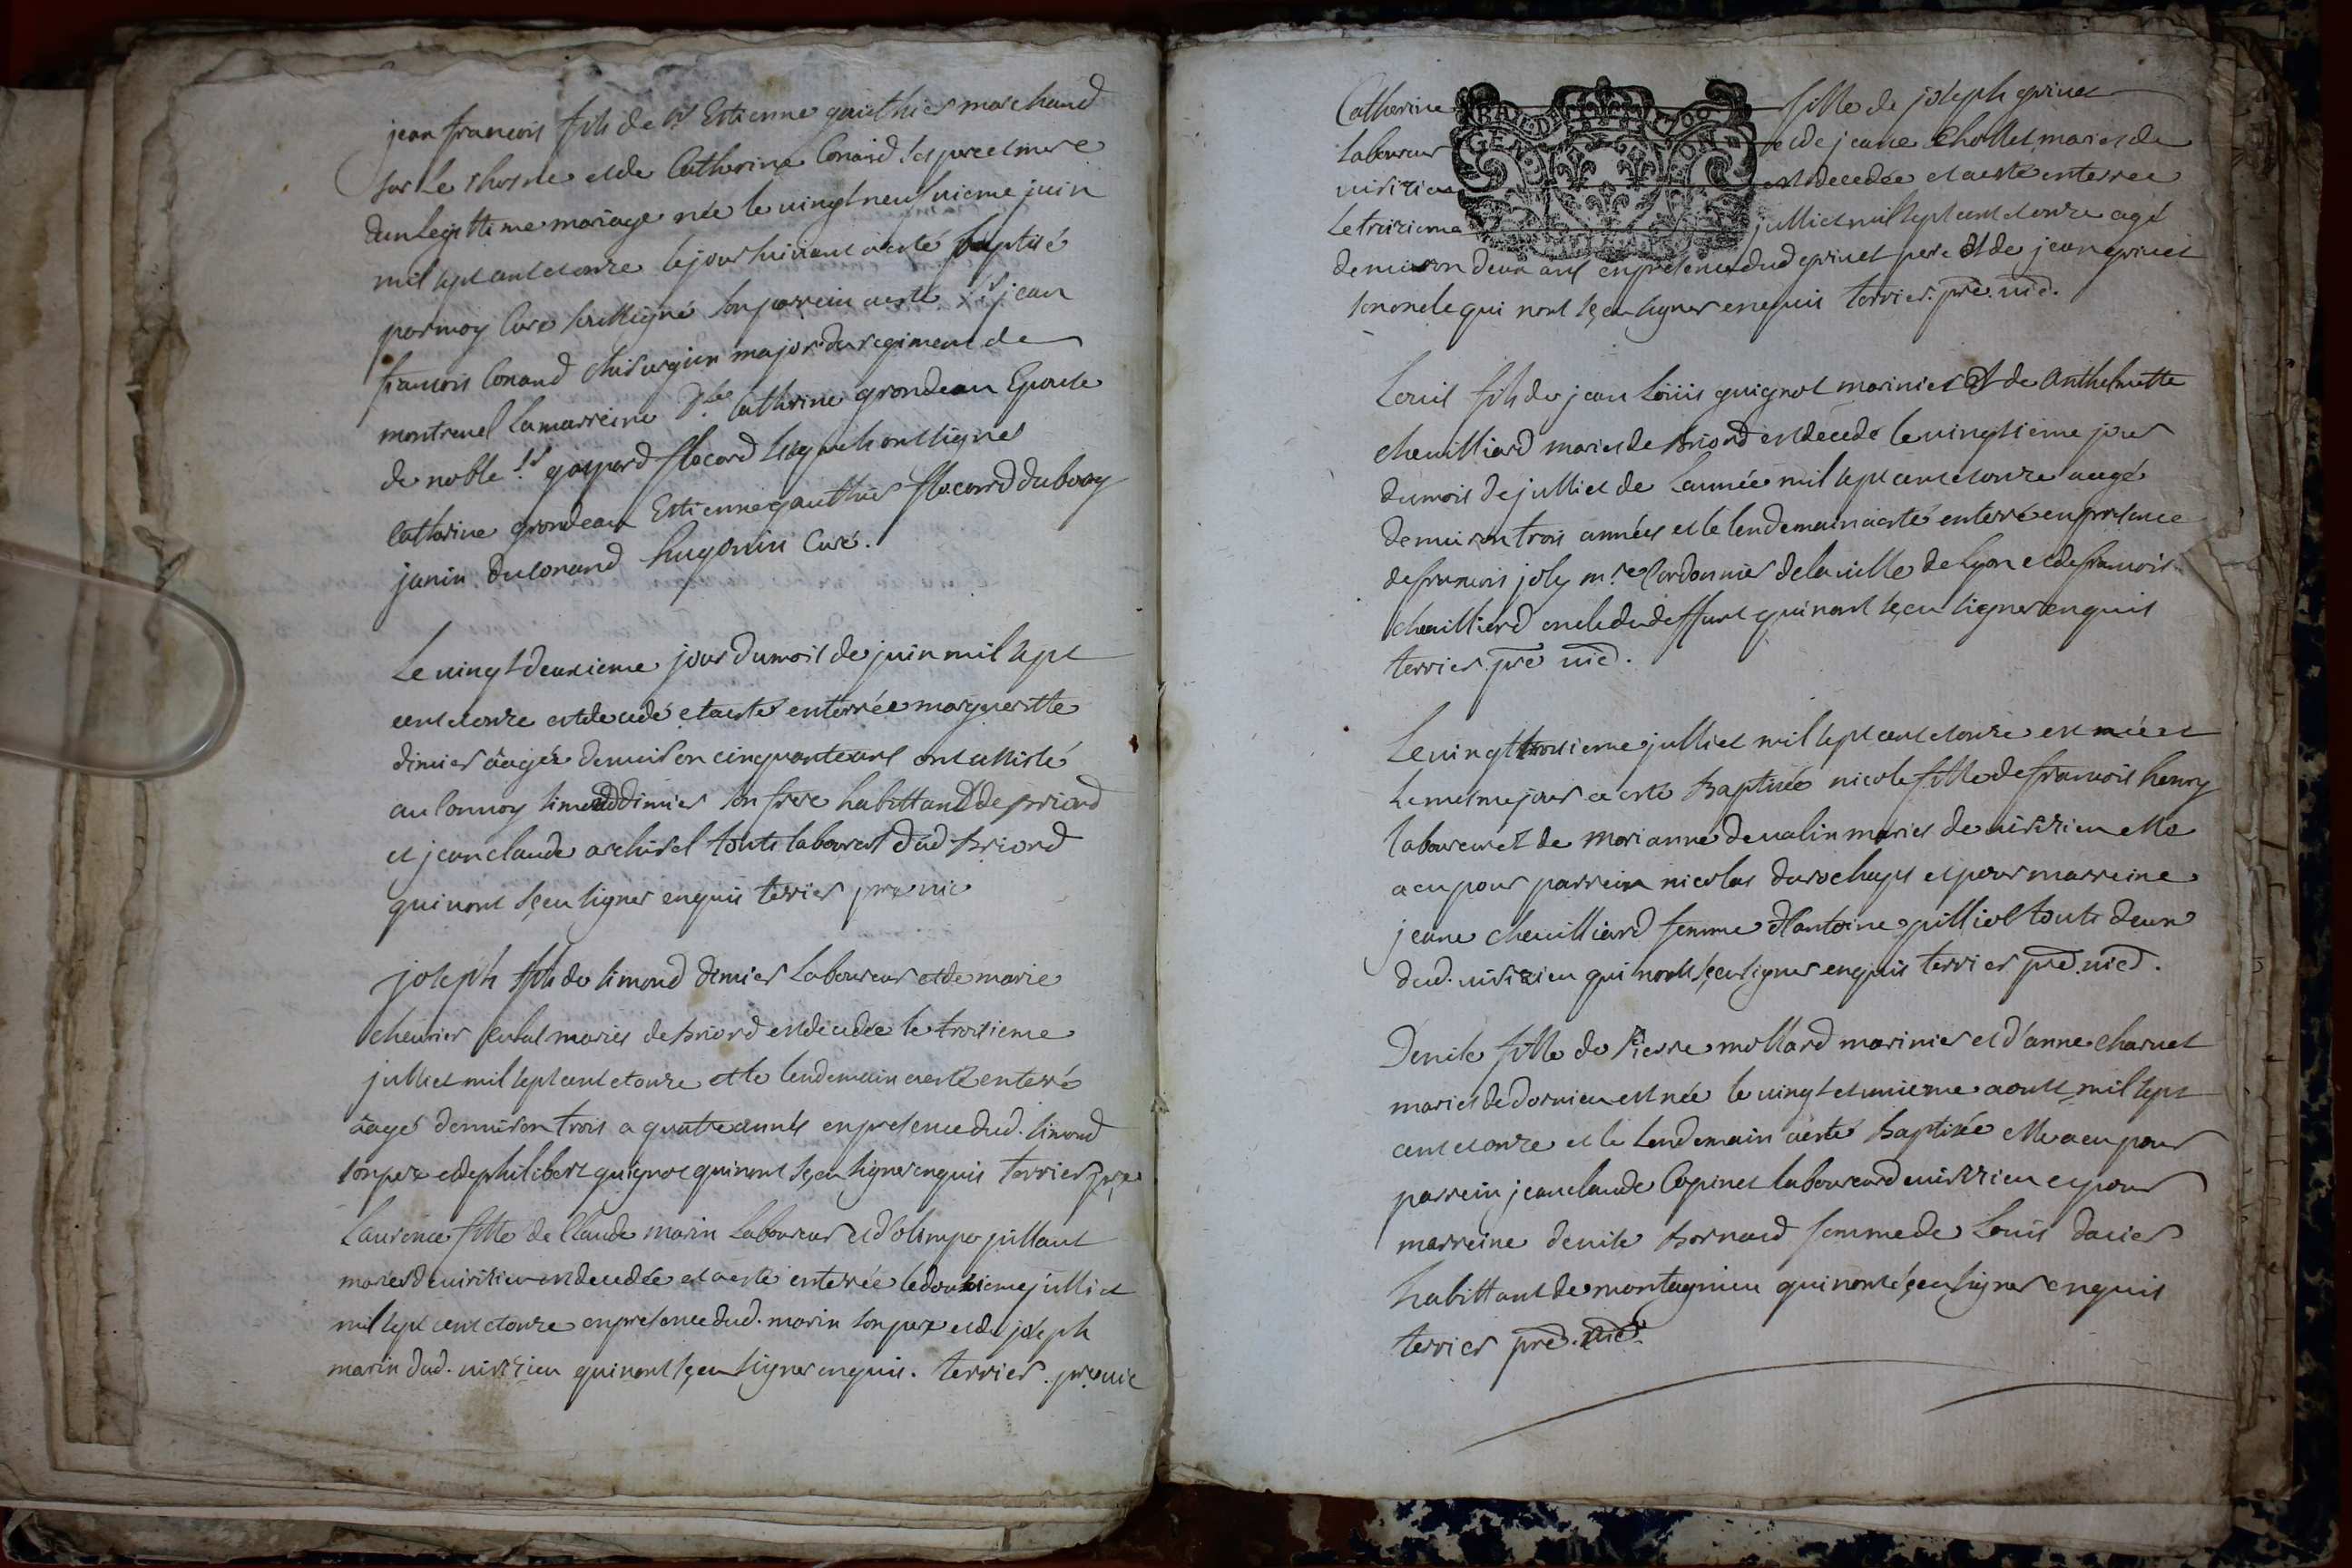 jean francois fils de sr Estienne gauthier marchand
sur le rhosne et de Catherine Conand ses pere et mere
dun legittime mariage née le vingt neufvieme juin
mil sept cent et onze le jour suivant a esté baptisé
par moy Curé soussigné son parrein a esté sr jean
francois Conand chirurgien major du regiment de
montrevel la marreine dlle Catherine grondeau Epouse
de noble sr gaspard flocard lesquels ont signes
Catherine grondeau Estienne gauthier flocard
janin Hugonin Curé.
Le vingt deuxieme jour du mois de juin mil sept
cent et onze est decedé et a esté enterrée margueritte
dimier âagée denviron cinquante ans ont assisté
au Convoy simond dimier son frere habittand de briord
et jean claude touts laboureurs dud briord
qui nont sçeu signer enquis terrier pre vic
joseph fils de simond dimier Laboureur et de marie
chevrier maries de briord est decedée le troisieme
julliet mil sept cent et onze et le lendemain a esté enteré
âagé denviron trois a quatre années en presence dud. simond
son pere et de philibert guignot qui nont sçeu signer enquis terrier pre
Laurence fille de Claude marin Laboureur et dolimpe
maries de virizieu est decedée et a esté enterée le douzieme julliet
mil sept cent et onze en presence dud. marin son pere et de joseph
marin dud. virizieu qui nont sçeu signer enquis. terrier. pre vic
Catherine fille de joseph grinet
Laboureur et de jeane Chollet maries de
virizieu est decedée et a esté enterrée
Le treizieme julliet mil sept cent et onze agé
denviron deux ans en presence dud grinet pere et de jean grinet
son oncle qui nont sçeu signer enquis terrier. pre. vic.
GEN DE
Louis fils de jean Louis guignot marinier et de Anthelmette
chevilliard maries de briord est decedé le vingtieme jour
du mois de julliet de Lannée mil sept cent et onze aagé
denviron trois années et le lendemain a esté enterré en presence
de francois joly mre Cordonnier de la ville de lyon et de francois
chevilliard oncle du deffunt qui nont sçeu signer enquis
terrier pre vic.
Le vingt troisieme julliet mil sept cent et onze est née et
le mesme jour a esté baptisée nicole fille de francois henry
laboureur et de marianne devalin maries de virizieu elle
a eu pour parrein nicolas durochapt et pour marreine
jeane chevilliard femme dantoine pilliol touts deux
dud. virizieu qui nont sçeu signer enquis terrier pre. vic.
Denise fille de Pierre mollard marinier et d'anne charvet
maries de dornieu est née le vingt et unieme aoust mil sept
cent et onze et le lendemain a esté baptisée elle a eu pour
parrein jean claude Copinet laboureur de virizieu et pour
marreine denise bornard femme de Louis davier
habittant de montagnieu qui nont sçeu signer enquis
terrier pre. vic.